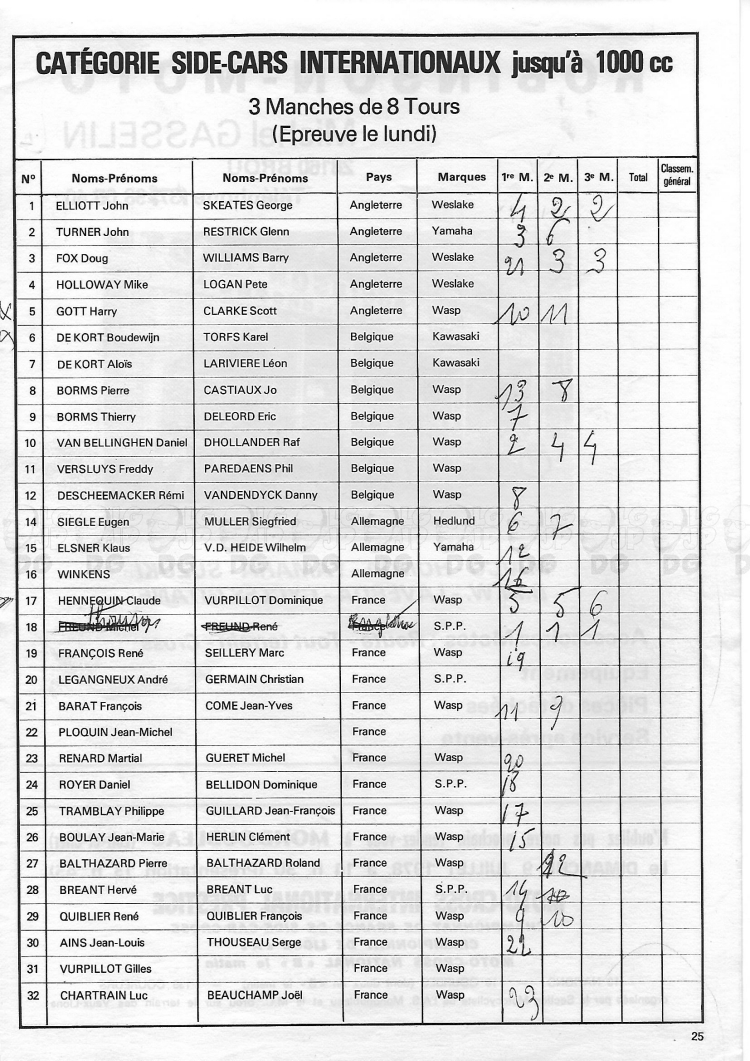 CATÉGORIE SIDE-CARS INTERNATIONAUX jusqu'à 1000 cc
3 Manches de 8 Tours
(Epreuve le lundi)
N° Noms-Prénoms Noms-Prénoms Pays Marques 1re M. 2e M. 3e M. Total Classem. général
1 ELLIOTT John SKEATES George Angleterre Weslake 4 2 2
2 TURNER John RESTRICK Glenn Angleterre Yamaha 3 6
3 FOX Doug WILLIAMS Barry Angleterre Weslake 21 3 3
4 HOLLOWAY Mike LOGAN Pete Angleterre Weslake
5 GOTT Harry CLARKE Scott Angleterre Wasp 10 11
6 DE KORT Boudewijn TORFS Karel Belgique Kawasaki
7 DE KORT Aloïs LARIVIERE Léon Belgique Kawasaki
8 BORMS Pierre CASTIAUX Jo Belgique Wasp 13 8
9 BORMS Thierry DELEORD Eric Belgique Wasp 7
10 VAN BELLINGHEN Daniel DHOLLANDER Raf Belgique Wasp 2 4 4
11 VERSLUYS Freddy PAREDAENS Phil Belgique Wasp
12 DESCHEEMACKER Rémi VANDENDYCK Danny Belgique Wasp 8
14 SIEGLE Eugen MULLER Siegfried Allemagne Hedlund 6 7
15 ELSNER Klaus V.D. HEIDE Wilhelm Allemagne Yamaha 12
16 WINKENS Allemagne 16
17 HENNEQUIN Claude VURPILLOT Dominique France Wasp 5 5 6
18 FREUND Michel FREUND René France S.P.P. 1 1 1
19 FRANÇOIS René SEILLERY Marc France Wasp 19
20 LEGANGNEUX André GERMAIN Christian France S.P.P.
21 BARAT François COME Jean-Yves France Wasp 11 9
22 PLOQUIN Jean-Michel France
23 RENARD Martial GUERET Michel France Wasp 20
24 ROYER Daniel BELLIDON Dominique France S.P.P. 18
25 TRAMBLAY Philippe GUILLARD Jean-François France Wasp 17
26 BOULAY Jean-Marie HERLIN Clément France Wasp 15
27 BALTHAZARD Pierre BALTHAZARD Roland France Wasp
28 BREANT Hervé BREANT Luc France S.P.P. 14
29 QUIBLIER René QUIBLIER François France Wasp 9 10
30 AINS Jean-Louis THOUSEAU Serge France Wasp 22
31 VURPILLOT Gilles France Wasp
32 CHARTRAIN Luc BEAUCHAMP Joël France Wasp 23
25